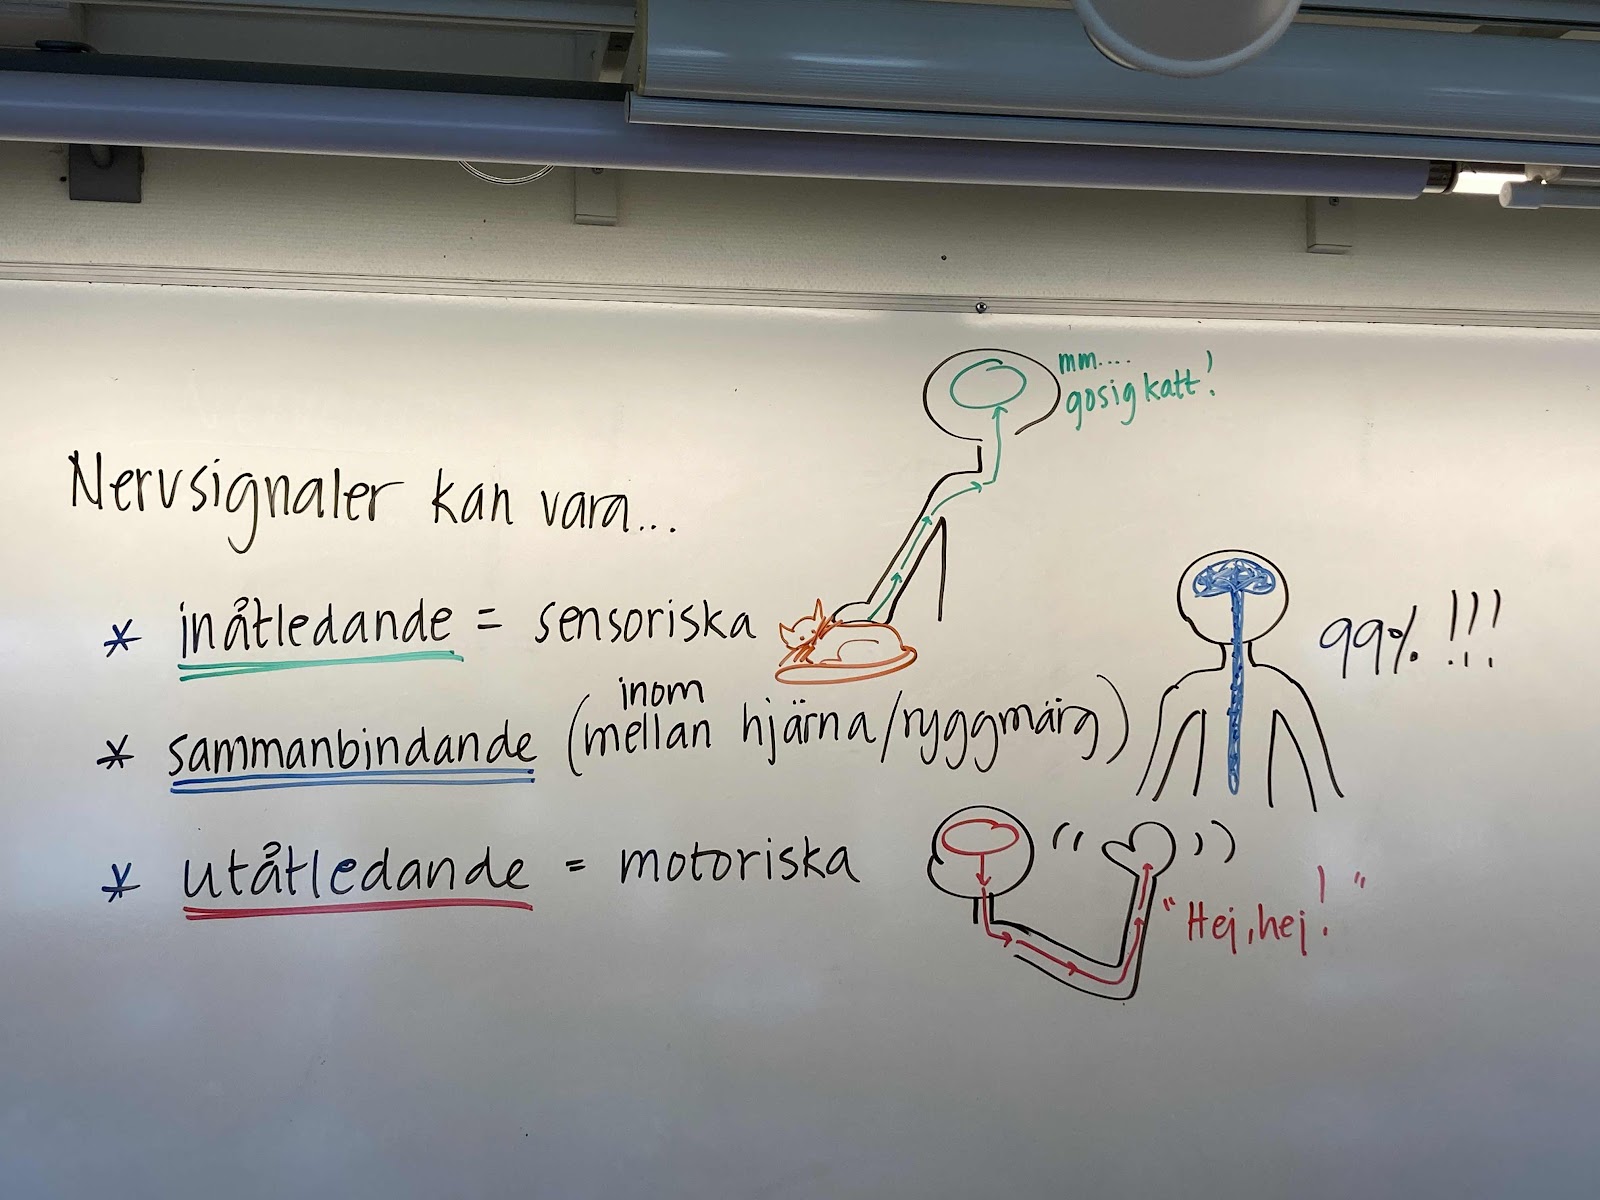 mm....
gosig katt!
Nervsignaler kan vara...
* inåtledande = sensoriska
inom
* sammanbindande (mellan hjärna/ryggmärg)
99% !!!
* utåtledande = motoriska
"Hej, hej!"